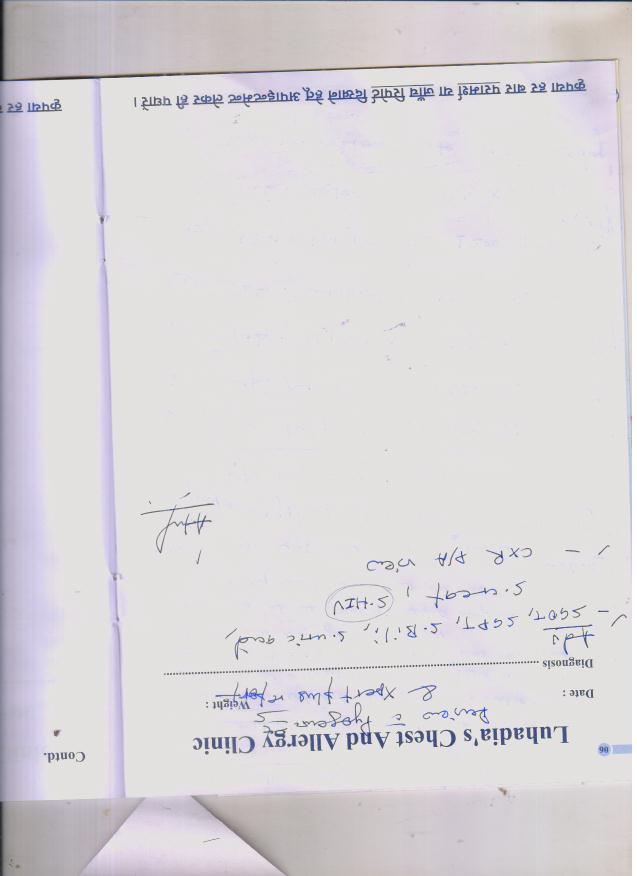 06
Luhadia's Chest And Allergy Clinic
Review c̄ Pyogenic
Date :
& Xpert plus report
Weight :
Diagnosis
Adv
- SGOT, SGPT, S.Bili, S.uric acid,
S.creat, S.HIV
- CXR P/A view
कृपया हर बार परामर्श या जाँच रिपोर्ट दिखाने हेतु अपाइन्टमेन्ट लेकर ही पधारें।
Contd.
कृपया हर